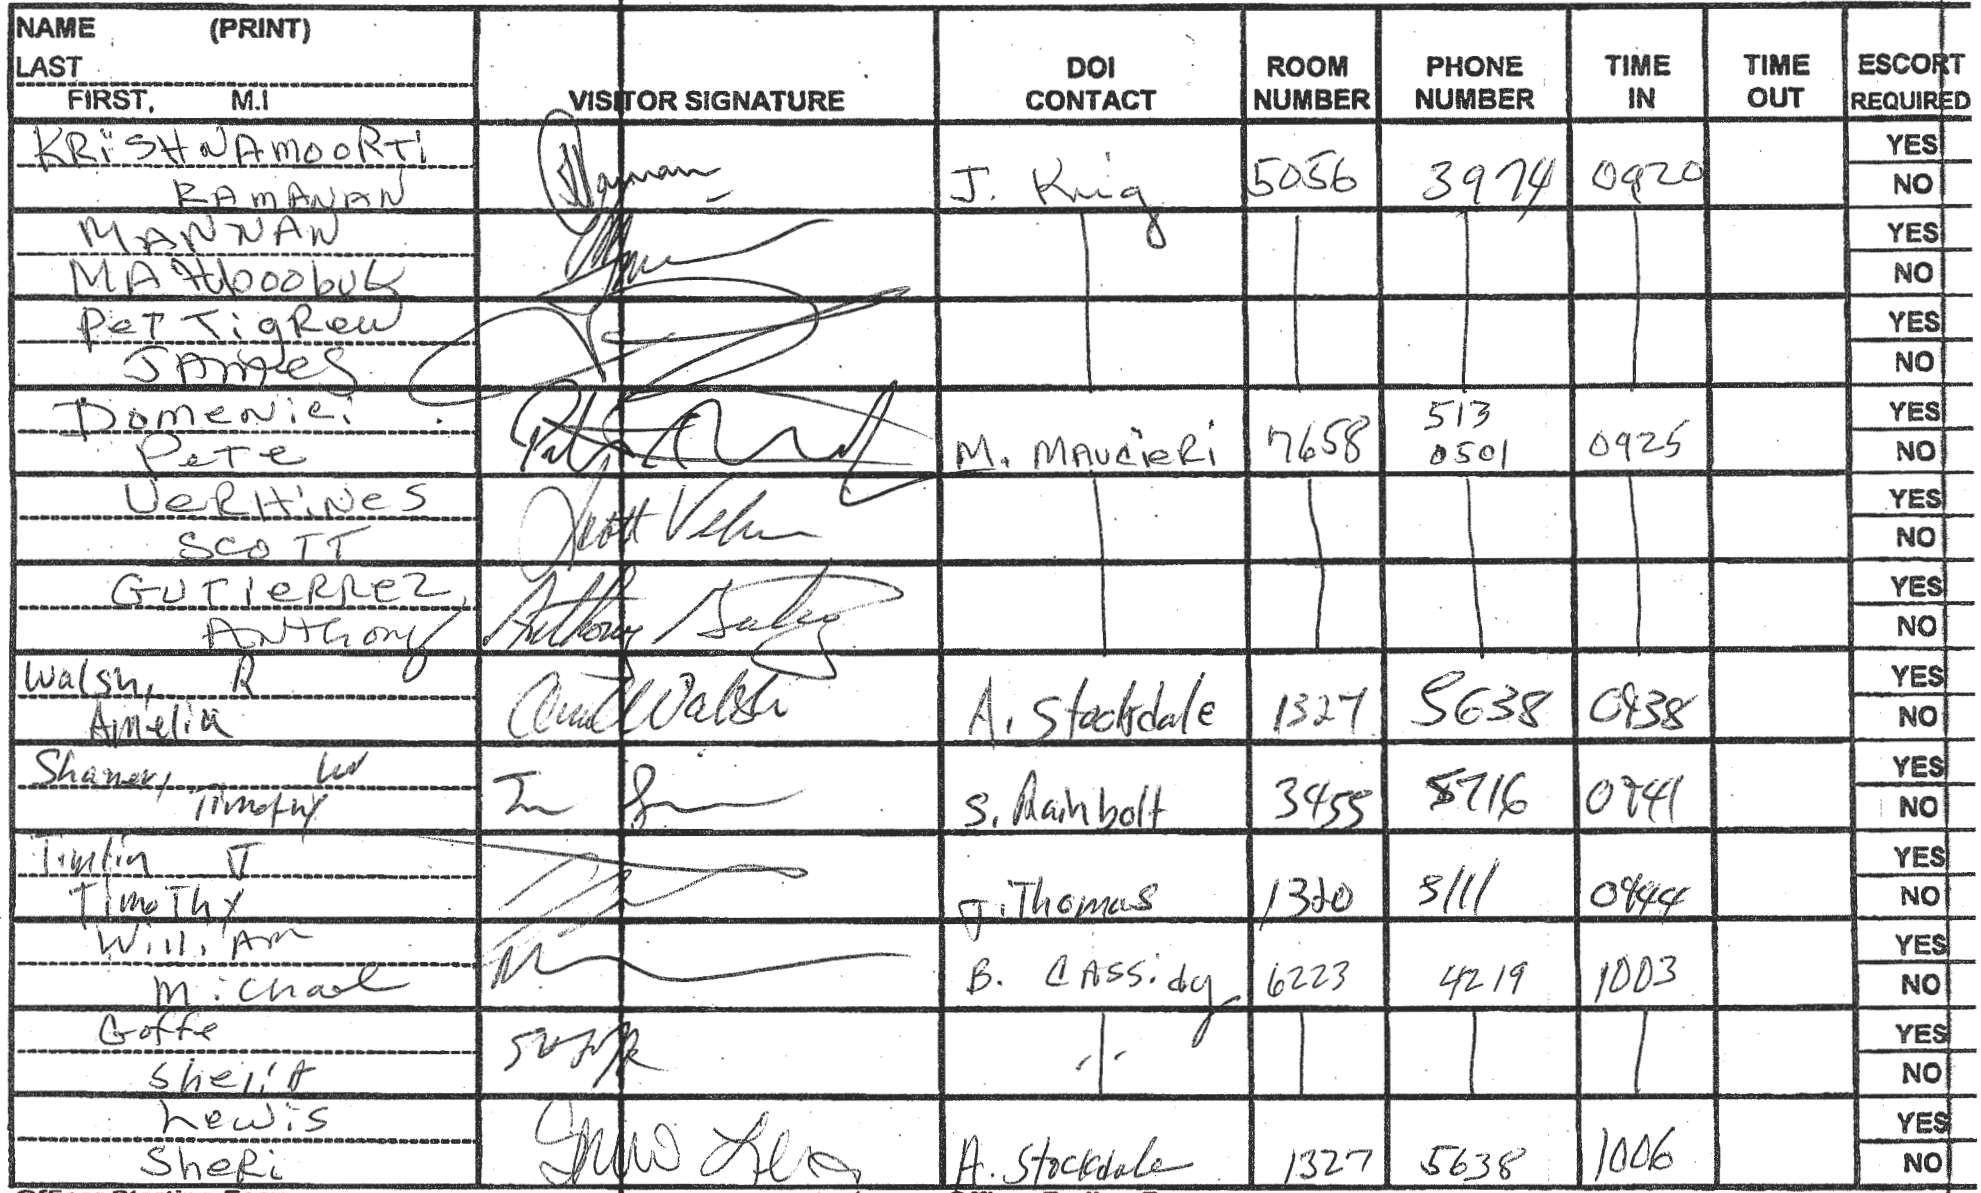 NAME (PRINT)
LAST
FIRST, M.I
VISITOR SIGNATURE
DOI CONTACT
ROOM NUMBER
PHONE NUMBER
TIME IN
TIME OUT
ESCORT REQUIRED
KRiSHNAMOORTI
RAMANAN
J. King 5056 3974 0920 YES
NO
MANNAN YES
MAHboobuL NO
PeTTigRew YES
JAMES NO
DomeNici 513 YES
PeTe M. MAUCieRi 7658 0501 0925 NO
VeRHiNeS YES
SCOTT Scott NO
GUTieRRez, YES
ANThony Anthony NO
Walsh, R YES
Amelia Walsh A. Stockdale 1327 5638 0938 NO
Shaner, W YES
Timothy S. Rainbolt 3455 5716 0941 NO
Timlin J YES
TimoThy J. Thomas 1320 3111 0944 NO
Will, Am YES
Michael B. CASSidy 6223 4219 1003 NO
Goffe YES
SheliA NO
Lewis YES
SheRi A. Stockdale 1327 5638 1006 NO